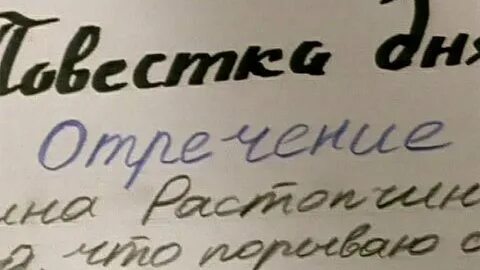 Повестка дня
Отречение
ина Растопчин
а, что порываю с